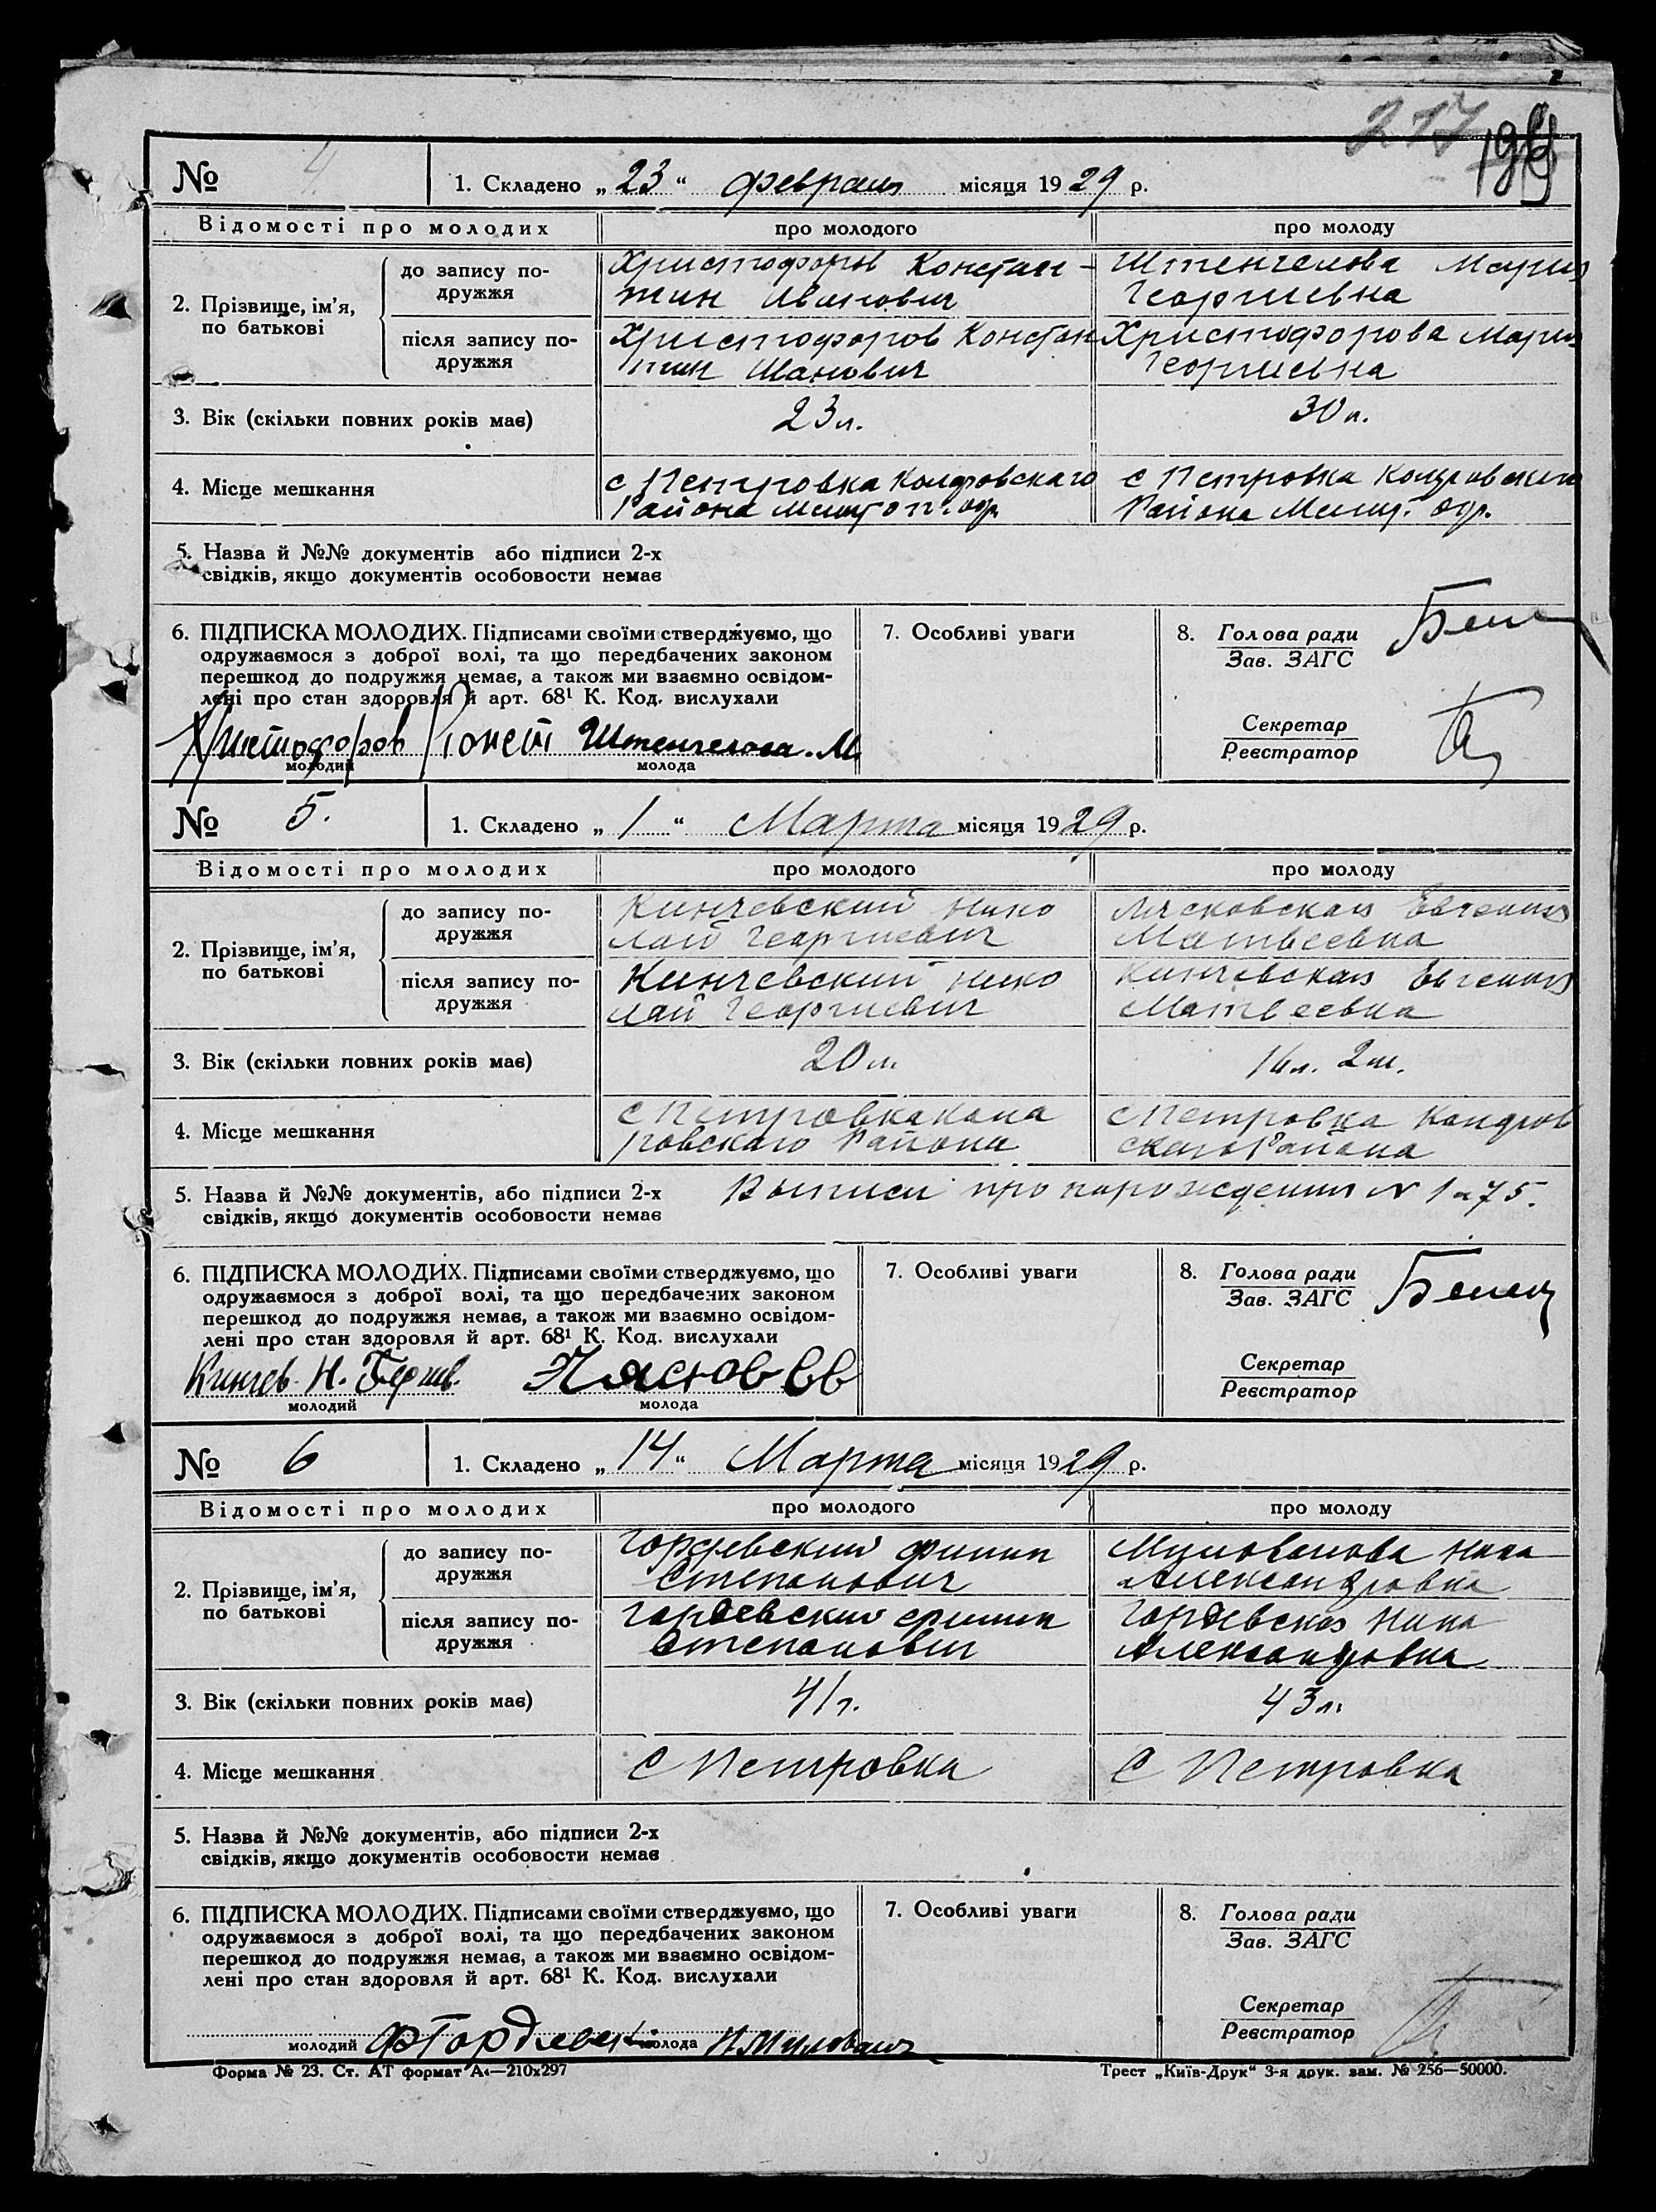 217
№ 4. 1. Складено „ 23 “ февраля місяця 1929 р.
Відомості про молодих про молодого про молоду
2. Прізвище, ім’я, по батькові
до запису по-
дружжя
Христофоров Констан-
тин Иванович
Штенгелова Мария
Георгиевна
після запису по-
дружжя
Христофоров Констан
тин Иванович
Христофорова Мария
Георгиевна
3. Вік (скільки повних років має) 23 л. 30 л.
4. Місце мешкання
с Петровка
Района
с Петровка
Района
5. Назва й №№ документів або підписи 2-х
свідків, якщо документів особовости немає
6. ПІДПИСКА МОЛОДИХ. Підписами своїми стверджуємо, що
одружаємося з доброї волі, та що передбачених законом
перешкод до подружжя немає, а також ми взаємно освідом-
лені про стан здоровля й арт. 68¹ К. Код. вислухали
Христофоров Конст Штенгелова. М
молодий молода
7. Особливі уваги
8. Голова ради
Зав. ЗАГС
Секретар
Реєстратор
№ 5. 1. Складено „ 1 “ Марта місяця 1929 р.
Відомості про молодих про молодого про молоду
2. Прізвище, ім’я, по батькові
до запису по-
дружжя
Кинчевский Нико
лай Георгиевич
Лясковская Евгения
Матвеевна
після запису по-
дружжя
Кинчевский Нико
лай Георгиевич
Кинчевская Евгения
Матвеевна
3. Вік (скільки повних років має) 20 л. 16 л. 2 м.
4. Місце мешкання
с Петровка
ровского Района
с Петровка Кандров
ского Района
5. Назва й №№ документів, або підписи 2-х
свідків, якщо документів особовости немає
Выписи про нарождения N 1 и 75.
6. ПІДПИСКА МОЛОДИХ. Підписами своїми стверджуємо, що
одружаємося з доброї волі, та що передбачених законом
перешкод до подружжя немає, а також ми взаємно освідом-
лені про стан здоровля й арт. 68¹ К. Код. вислухали
Кинчев. Н.
молодий молода
7. Особливі уваги
8. Голова ради
Зав. ЗАГС
Секретар
Реєстратор
№ 6 1. Складено „ 14 “ Марта місяця 1929 р.
Відомості про молодих про молодого про молоду
2. Прізвище, ім’я, по батькові
до запису по-
дружжя
Гордевский Филип
Степанович
Миловонова Нина
Александровна
після запису по-
дружжя
Гордевский Филип
Степанович
Гордевская Нина
Александровна
3. Вік (скільки повних років має) 41 г. 43 л.
4. Місце мешкання С Петровка С Петровка
5. Назва й №№ документів, або підписи 2-х
свідків, якщо документів особовости немає
6. ПІДПИСКА МОЛОДИХ. Підписами своїми стверджуємо, що
одружаємося з доброї волі, та що передбачених законом
перешкод до подружжя немає, а також ми взаємно освідом-
лені про стан здоровля й арт. 68¹ К. Код. вислухали
молодий молода
7. Особливі уваги
8. Голова ради
Зав. ЗАГС
Секретар
Реєстратор
Форма № 23. Ст. АТ формат А₄—210х297
Трест „Київ-Друк“ 3-я друк. зам. № 256—50000.